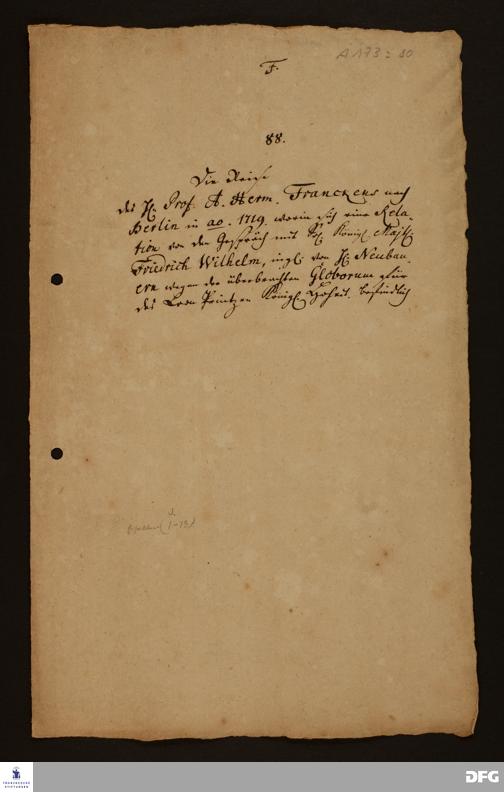 A 173 : 80
F.
88.
Die Reise
des H. Prof. A. Herm. Franckens nach
Berlin in ao. 1719 worin sich eine Rela-
tion von den Gespräch mit Sr. Königl. Majt.
Friedrich Wilhelm, ingl. von H. Neubau-
ern wegen der überbrachten Globorum für
des Cron Printzen Königl. Hoheit. befindlich
FRANCKESCHE
STIFTUNGEN
DFG